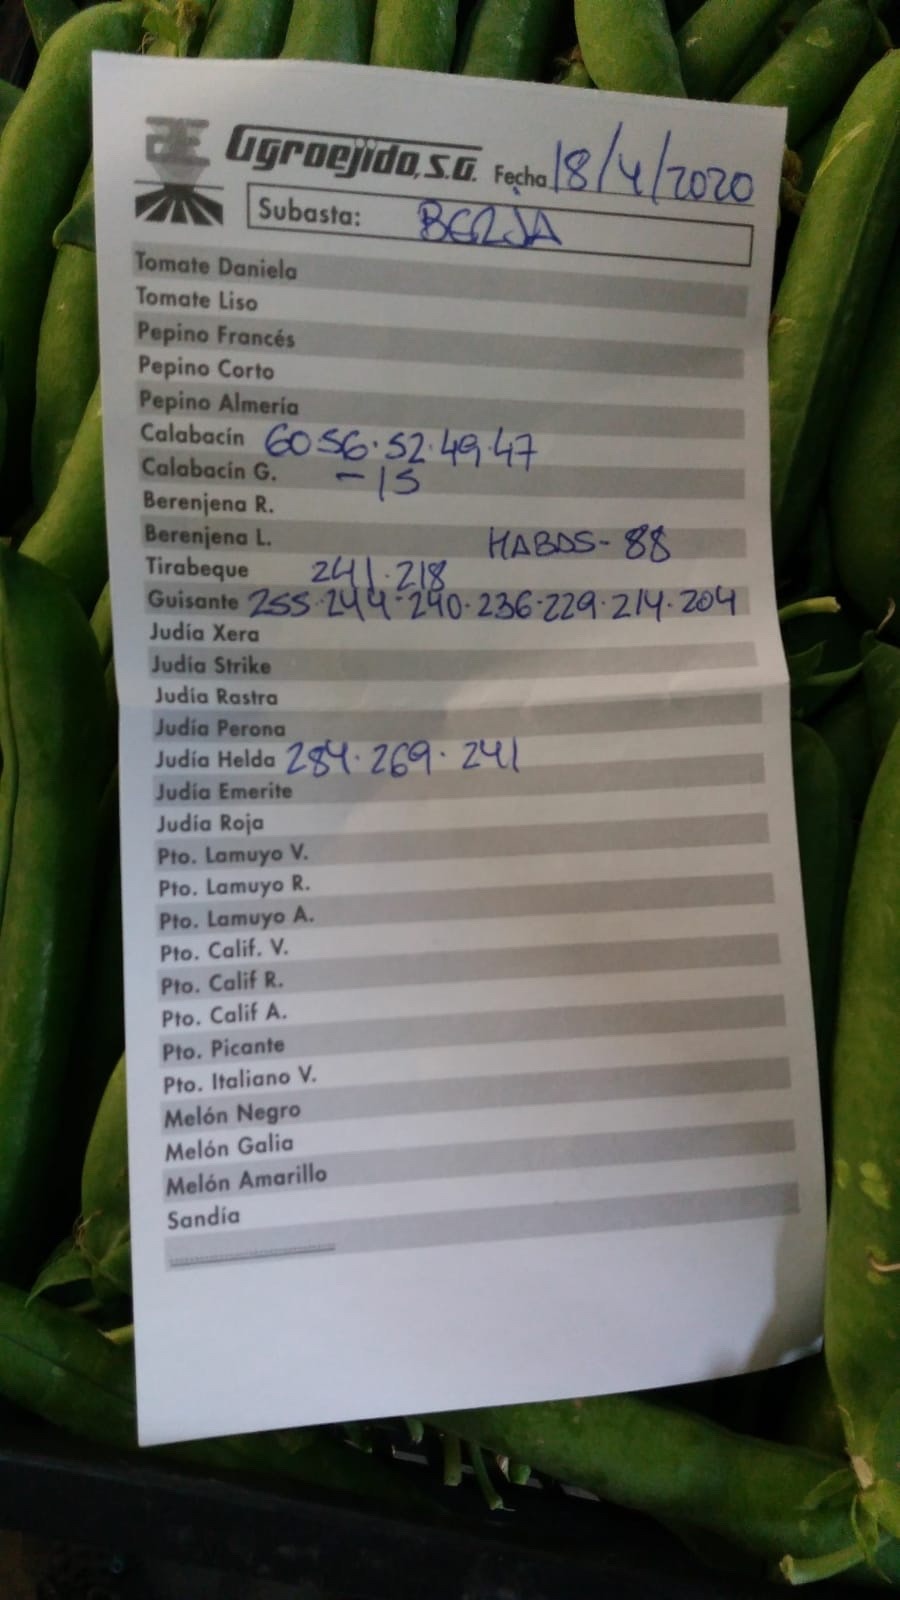 Agroejido, S.A. Fecha 18/4/2020
Subasta: BERJA
Tomate Daniela
Tomate Liso
Pepino Francés
Pepino Corto
Pepino Almería
Calabacín 60·56·52·49·47
Calabacín G. -15
Berenjena R.
Berenjena L. HABAS-88
Tirabeque 241·218
Guisante 255·244·240·236·229·214·204
Judía Xera
Judía Strike
Judía Rastra
Judía Perona
Judía Helda 284·269·241
Judía Emerite
Judía Roja
Pto. Lamuyo V.
Pto. Lamuyo R.
Pto. Lamuyo A.
Pto. Calif. V.
Pto. Calif R.
Pto. Calif A.
Pto. Picante
Pto. Italiano V.
Melón Negro
Melón Galia
Melón Amarillo
Sandía